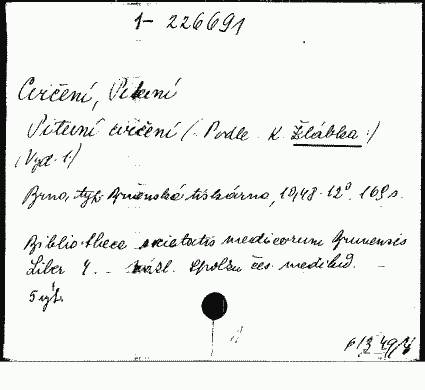 1- 226691
Cvičení, Pitevní
Pitevní cvičení (: Podle K Žlábka :)
(Vyd. 1.)
Brno, typ. Brněnská tiskárna, 1948. 12° 169 s.
Bibliotheca societatis medicorum Brunensis
Liber 4. - nákl. Spolku čes. mediků. -
5 výt.